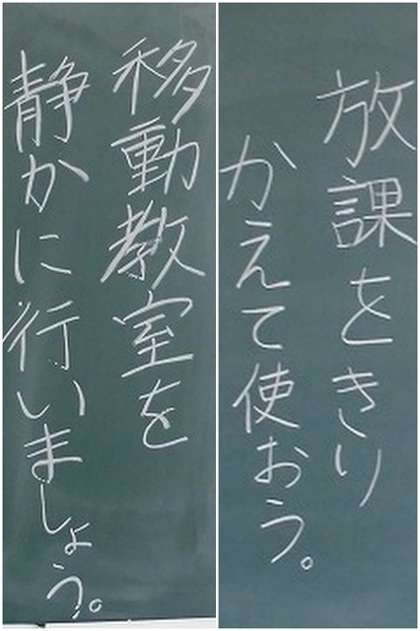 移動教室を
静かに行いましょう。
放課をきり
かえて使おう。